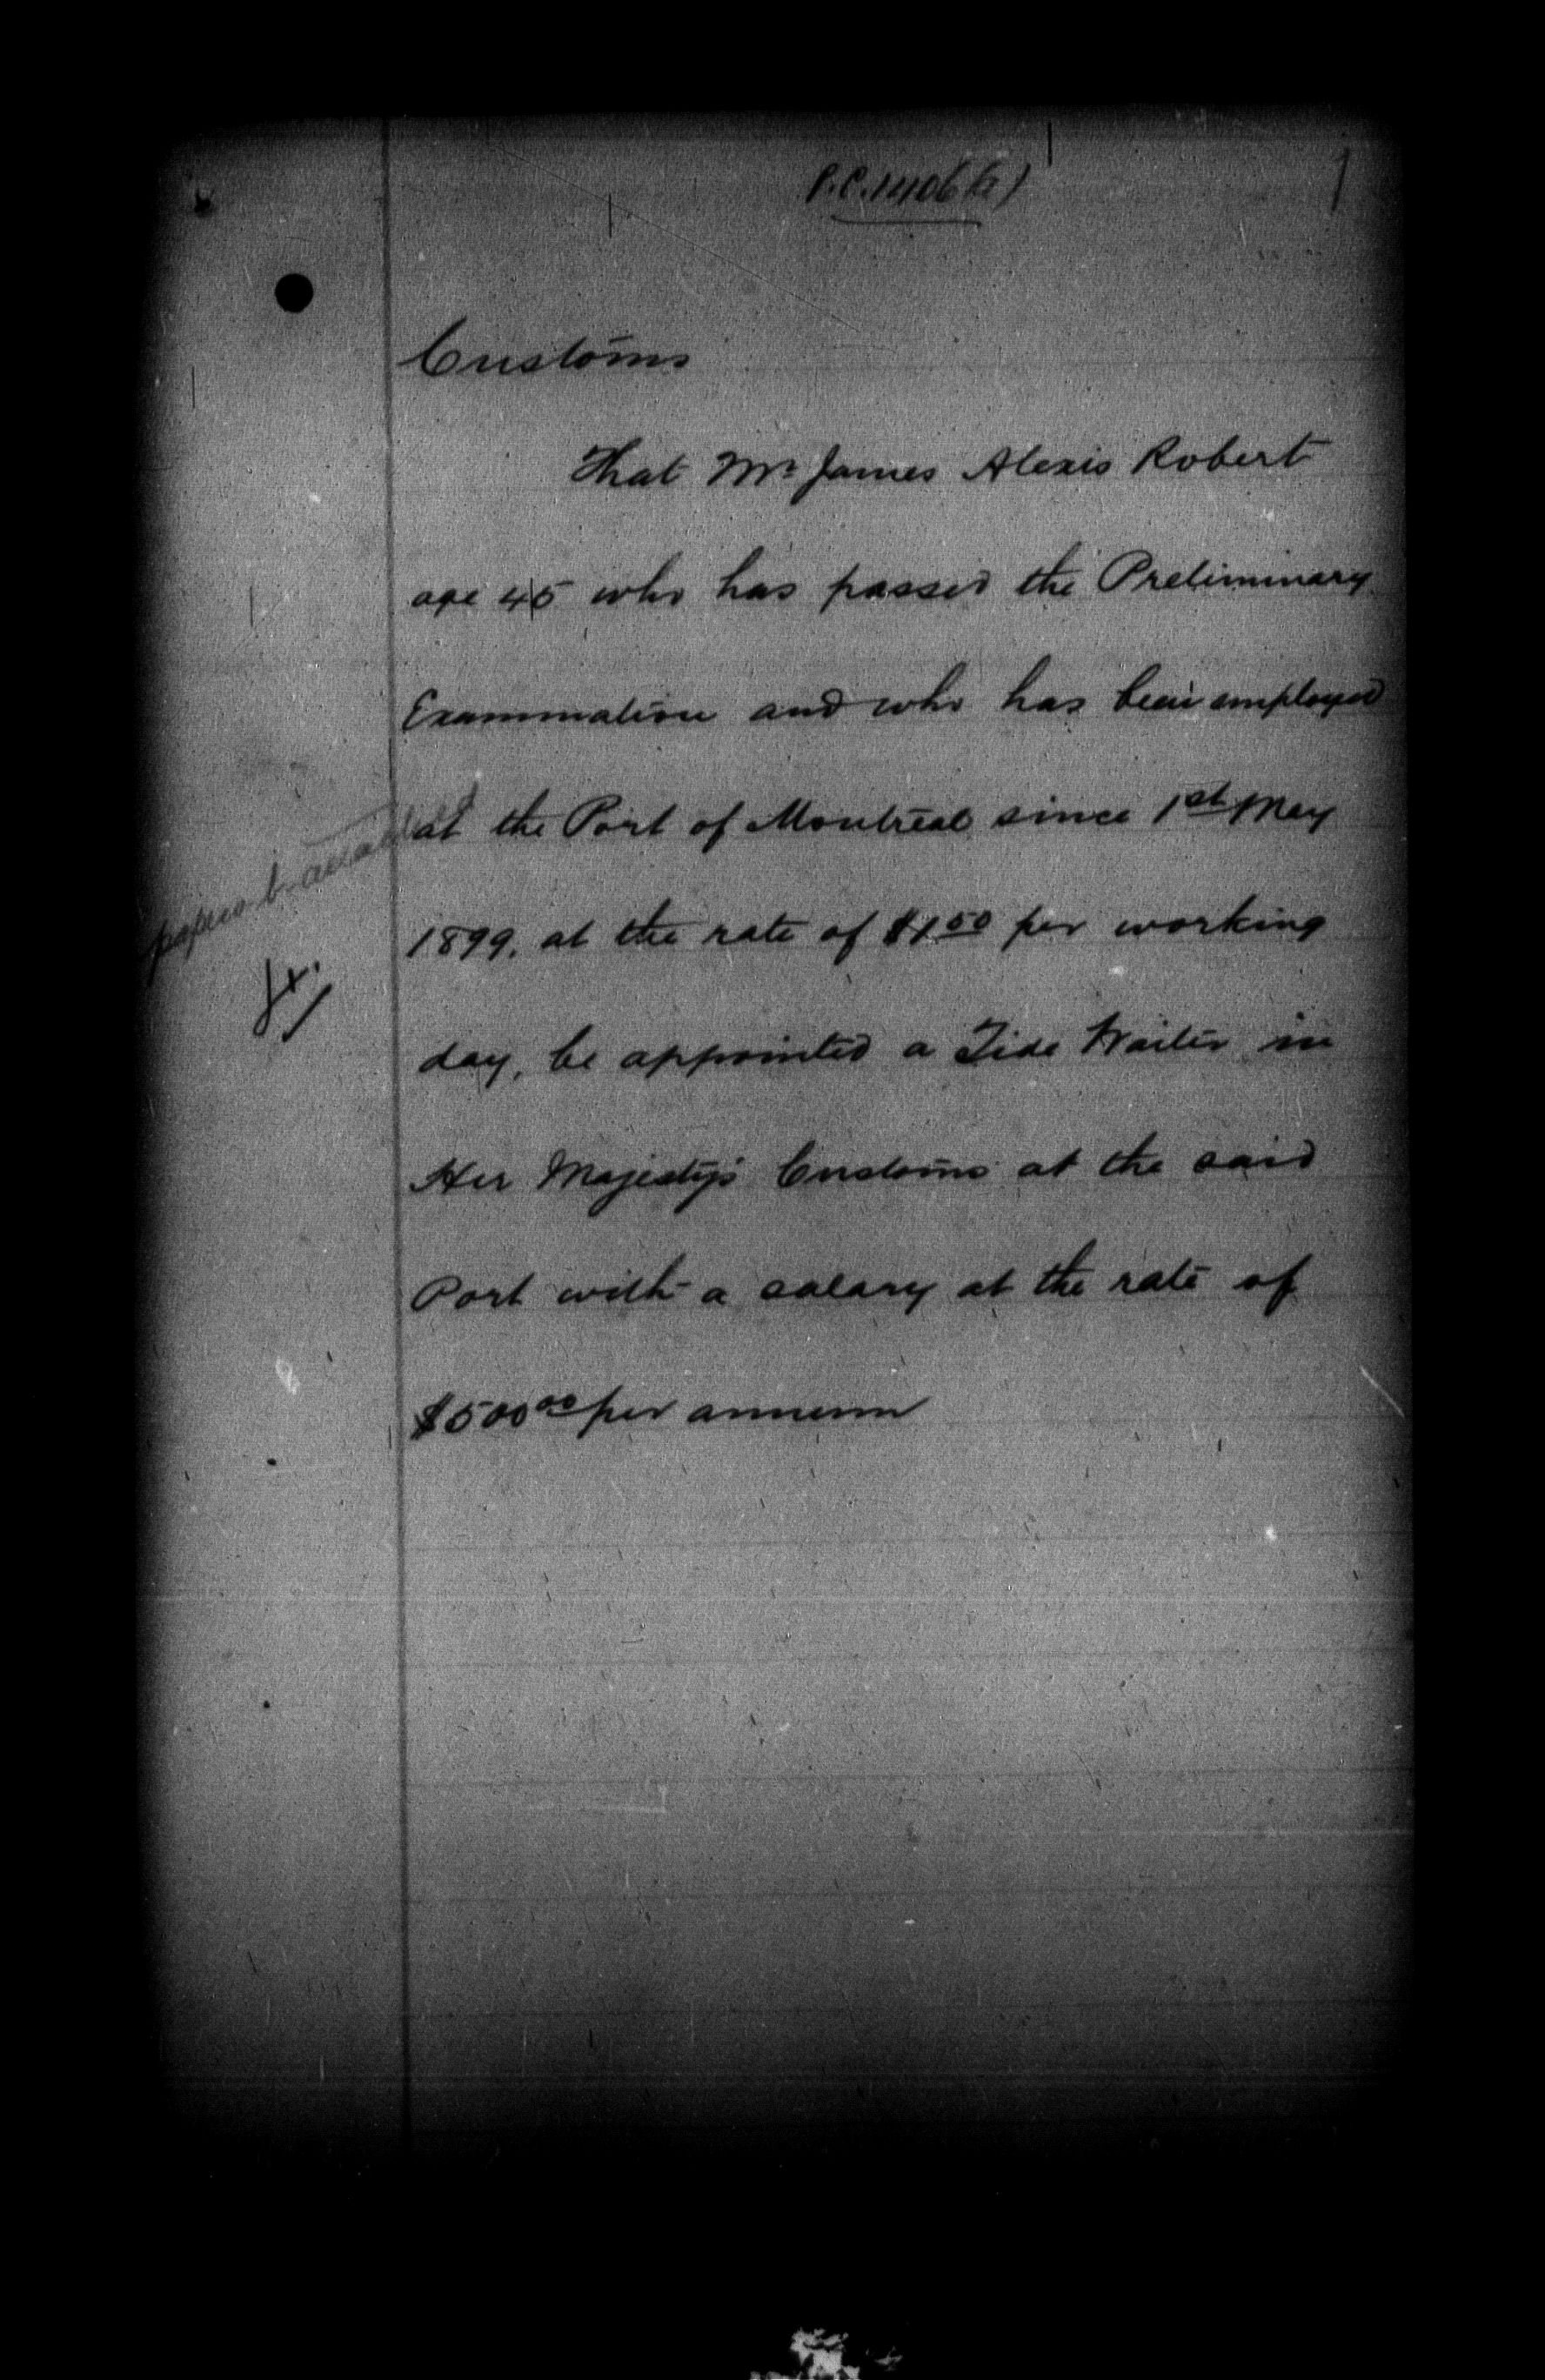 P.C. 1406 (G)
Customs
That Mr James Alexis Robert
age 45 who has passed the Preliminary
Examination and who has been employed
at the Port of Montreal since 1st May
1899, at the rate of $1.50 per working
day, be appointed a Tide Waiter in
Her Majesty's Customs at the said
Port with a salary at the rate of
$500.00 per annum
papers